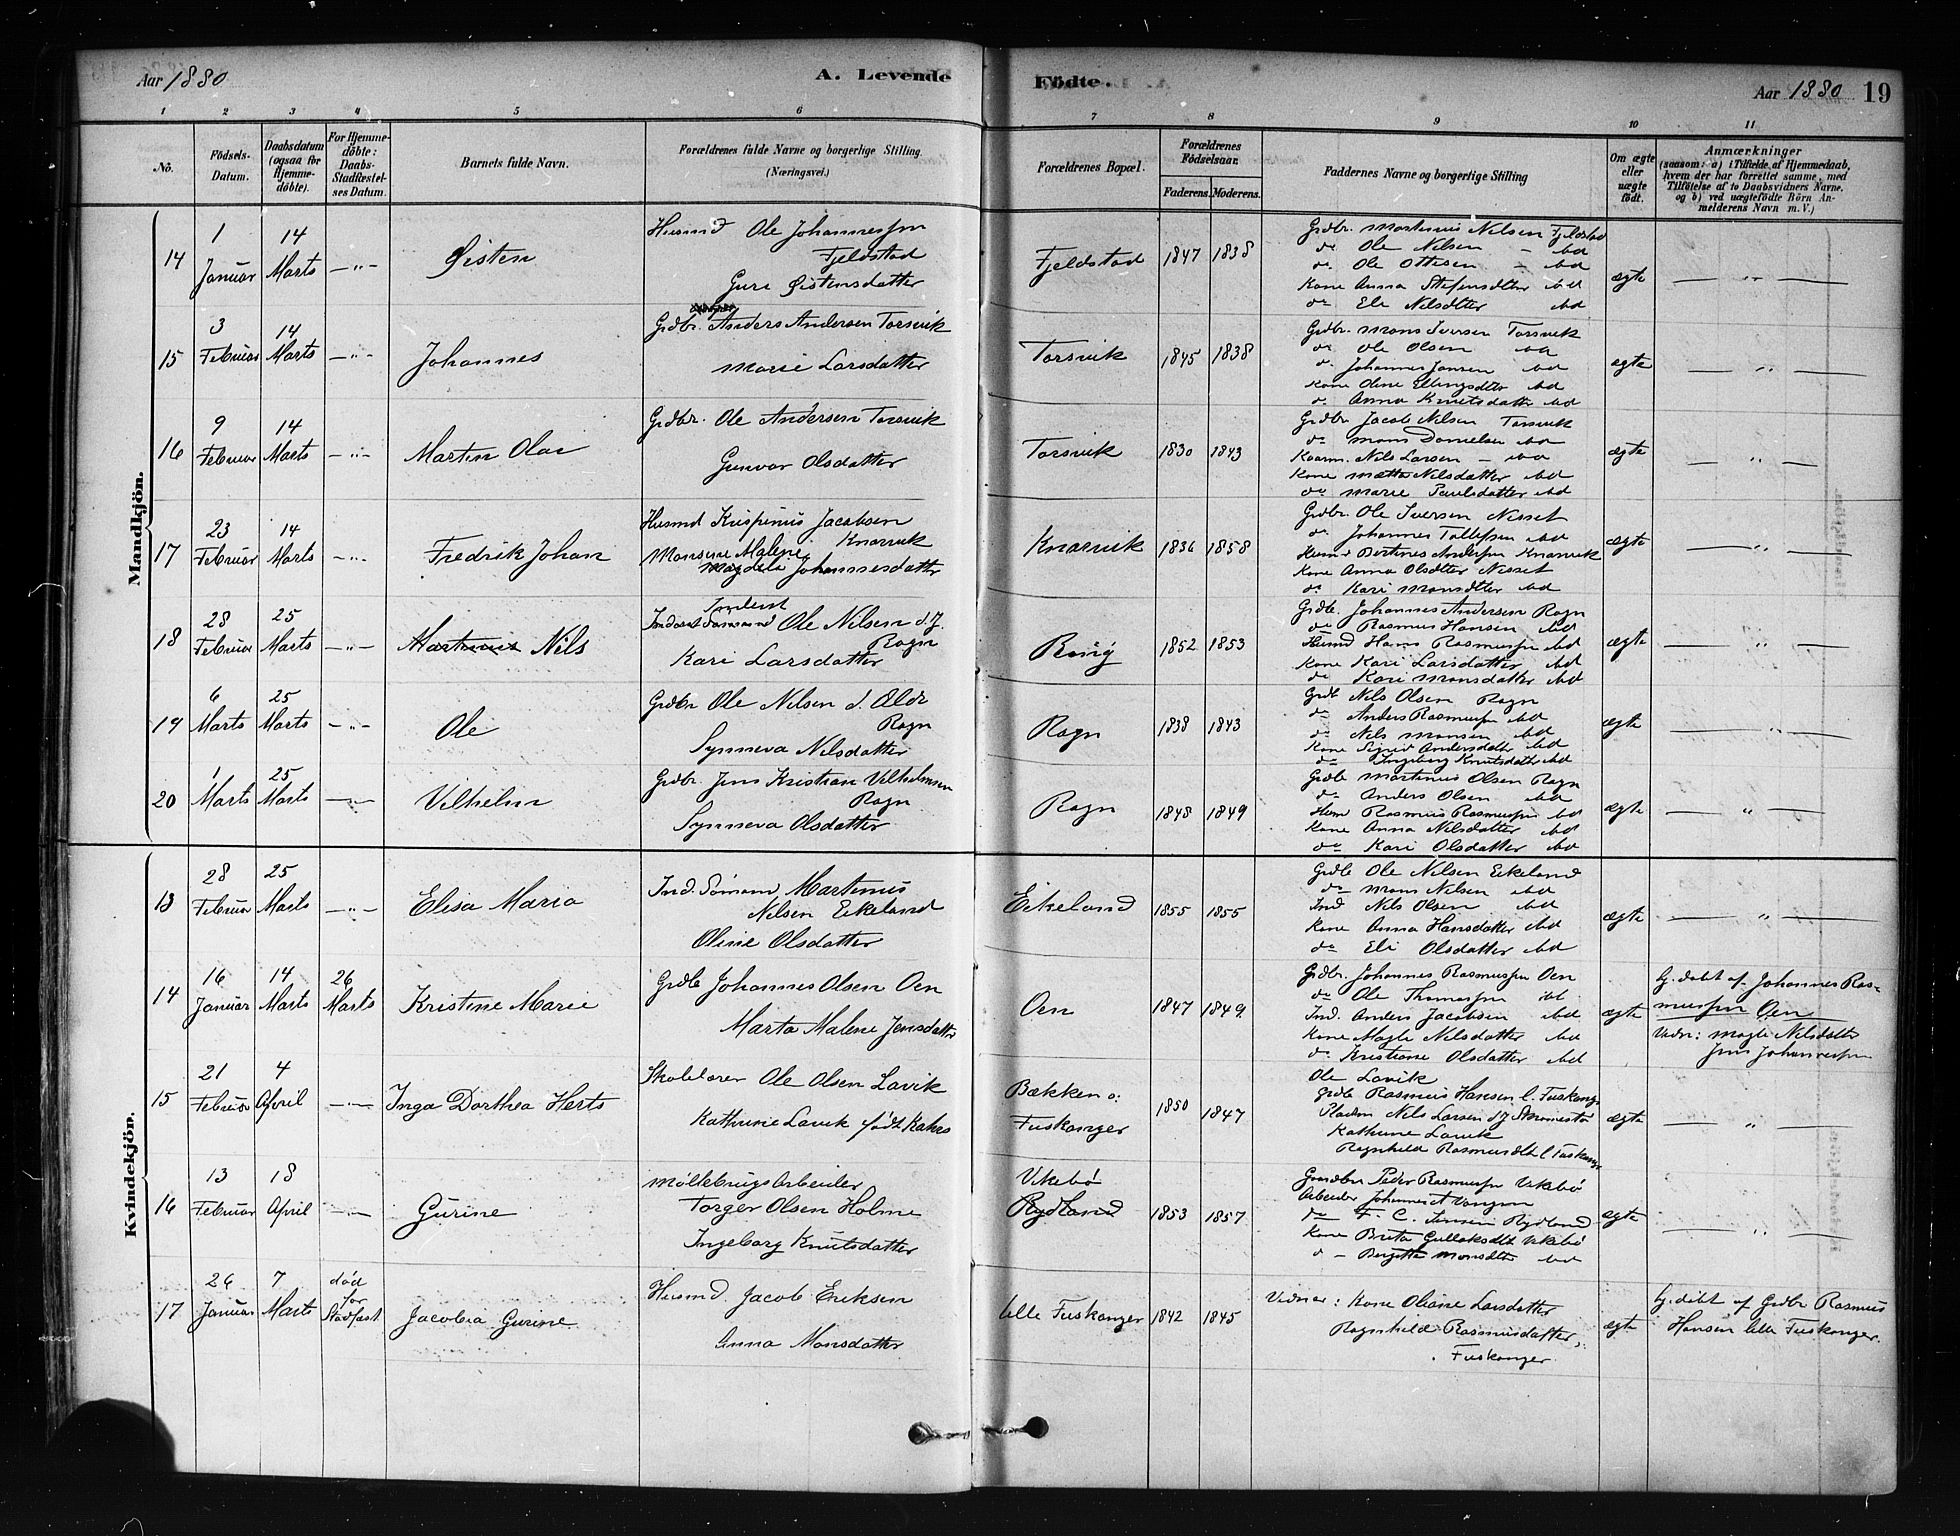 Aar 1880
A. Levende Födte.
Aar 1880 19
1 2 3 4 5 6 7 8 9 10 11
No.
Födsels-Datum.
Daabsdatum (ogsaa for Hjemme-döbte).
For Hjemme-döbte: Daabs-Stadfæstel-ses Datum.
Barnets fulde Navn.
Forældrenes fulde Navne og borgerlige Stilling.
(Næringsvei.)
Forældrenes Bopæl.
Forældrenes Födselsaar.
Faderens. Moderens.
Faddernes Navne og borgerlige Stilling
Om ægte eller uægte födt.
Anmærkninger
(saasom: a) i Tilfælde af Hjemmedaab,
hvem der har forrettet samme, med
Tilföielse af to Daabsvidners Navne,
og b) ved uægtefödte Börn An-
melderens Navn m. V.)
Mandkjön.
14
1 Januar
14 Marts
Øisten
Husmd Ole Johannessen
Fjeldstad
Guri Øistensdatter
Fjeldstad
1847 1838
Grdbr. Martinus Nilsen Fjeldstad
do Ole Nilsen ibd
do Ole Ottesen ibd
Kone Anna Stefensdtter ibd
do Eli Nilsdtter ibd
ægte
15
3 Februar
14 Marts
Johannes
Grdbr. Anders Andersen Torsvik
Marie Larsdatter
Torsvik
1845 1838
Grdbr. Mons Iversen Torsvik
do Ole Olsen ibd
do Johannes Jansen ibd
Kone Oline Ellingsdtter ibd
do Anna Knutsdatter ibd
ægte
16
9 Februar
14 Marts
Martin Olai
Grdbr. Ole Andersen Torsvik
Gunvor Olsdatter
Torsvik
1830 1843
Grdbr Jacob Nilsen Torsvik
do Mons Danielsen ibd
Kaarm. Nils Larsen ibd
Kone Mætte Nilsdatter ibd
do Marie Paulsdatter ibd
ægte
17
23 Februar
14 Marts
Fredrik Johan
Husmd Krispinus Jacobsen
Knarvik
Monsine Malene
Magdela Johannesdatter
Knarvik
1836 1858
Grdbr. Ole Iversen Nesset
do Johannes Tollefsen ibd
Husmd Bertinus Andersen Knarvik
Kone Anna Olsdtter Nesset
do Kari Monsdtter ibd
ægte
18
28 Februar
25 Marts
Martinus Nils
Inderst
Ole Nilsen d. y.
Rogn
Kari Larsdatter
1852 1853
Grdb. Johannes Andersen Rogn
do Rasmus Hansen ibd
Husmd Hans Rasmussen ibd
Kone Kari Larsdatter ibd
do Kari Monsdatter ibd
ægte
19
6 Marts
25 Marts
Ole
Grdbr Ole Nilsen d. Ældr
Rogn
Synneva Nilsdatter
Rogn
1838 1843
Grdb Nils Olsen Rogn
do Anders Rasmussen ibd
do Nils Monsen ibd
Kone Sigrid Andersdatter ibd
do Ingeborg Knutsdatter ibd
ægte
20
1 Marts
25 Marts
Vilhelm
Grdbr. Jens Kristian Vilhelmsen
Rogn
Synneva Olsdatter
Rogn
1848 1849
Grdb Martinus Olsen Rogn
do Anders Olsen ibd
Husm Rasmus Rasmussen ibd
Kone Anna Nilsdatter ibd
do Kari Olsdatter ibd
ægte
Kvindekjön.
13
28 Februar
25 Marts
Elisa Maria
Ind. Sömand Martinus
Nilsen Eikeland
Oline Olsdatter
Eikeland
1855 1855
Grdb Ole Nilsen Eikeland
do Mons Nilsen ibd
Ind Nils Olsen ibd
Kone Anna Hansdatter ibd
do Eli Olsdatter ibd
ægte
14
16 Januar
14 Marts
26 Marts
Kristine Marie
Grdb Johannes Olsen Oen
Marta Malene Jensdatter
Oen
1847 1849
Grdbr. Johannes Rasmussen Oen
do Ole Thomassen ibd
Ind. Anders Jacobsen ibd
Kone Magle Nilsdatter ibd
do Kristiane Olsdatter ibd
ægte
hj. döbt af Johannes Ras-
mussen Oen
Vidner: Magle Nilsdatter
Jens Johannessen
15
21 Februar
4 April
Inga Dorthea Herts
Skolelærer Ole Olsen Lavik
Kathrine Lavik født Kahrs
Bækken o:
Fuskanger
1850 1847
Ole Lavik
Grdb Rasmus Hansen l. Fuskang.
Nils Larsen d y
Kathrine Lavik
Ragnhild Rasmusdtr l Fuskang.
ægte
16
13 Februar
18 April
Gurine
Møllebrugsarbeider
Torger Olsen Holme
Ingeborg Knutsdatter
Vikebø
Rydland
1853 1857
Gaardbr Peder Rasmussen Vikebø
Arbeider Johannes
do F. C. Jensen Rydland
Kone Brita Gulleksdtr Vikebø
do Birgitte Monsdtr ibd
ægte
17
26 Januar
7 Marts
død før Stadfæst
Jacobia Gurine
Husmd. Jacob Eriksen
Anna Monsdatter
lille Fuskanger
1842 1845
Vidner: Kone Oliane Larsdatter
Ragnhild Rasmusdatter,
Fuskanger
ægte
hj. døbt af Grdbr Rasmus
Hansen lille Fuskanger.